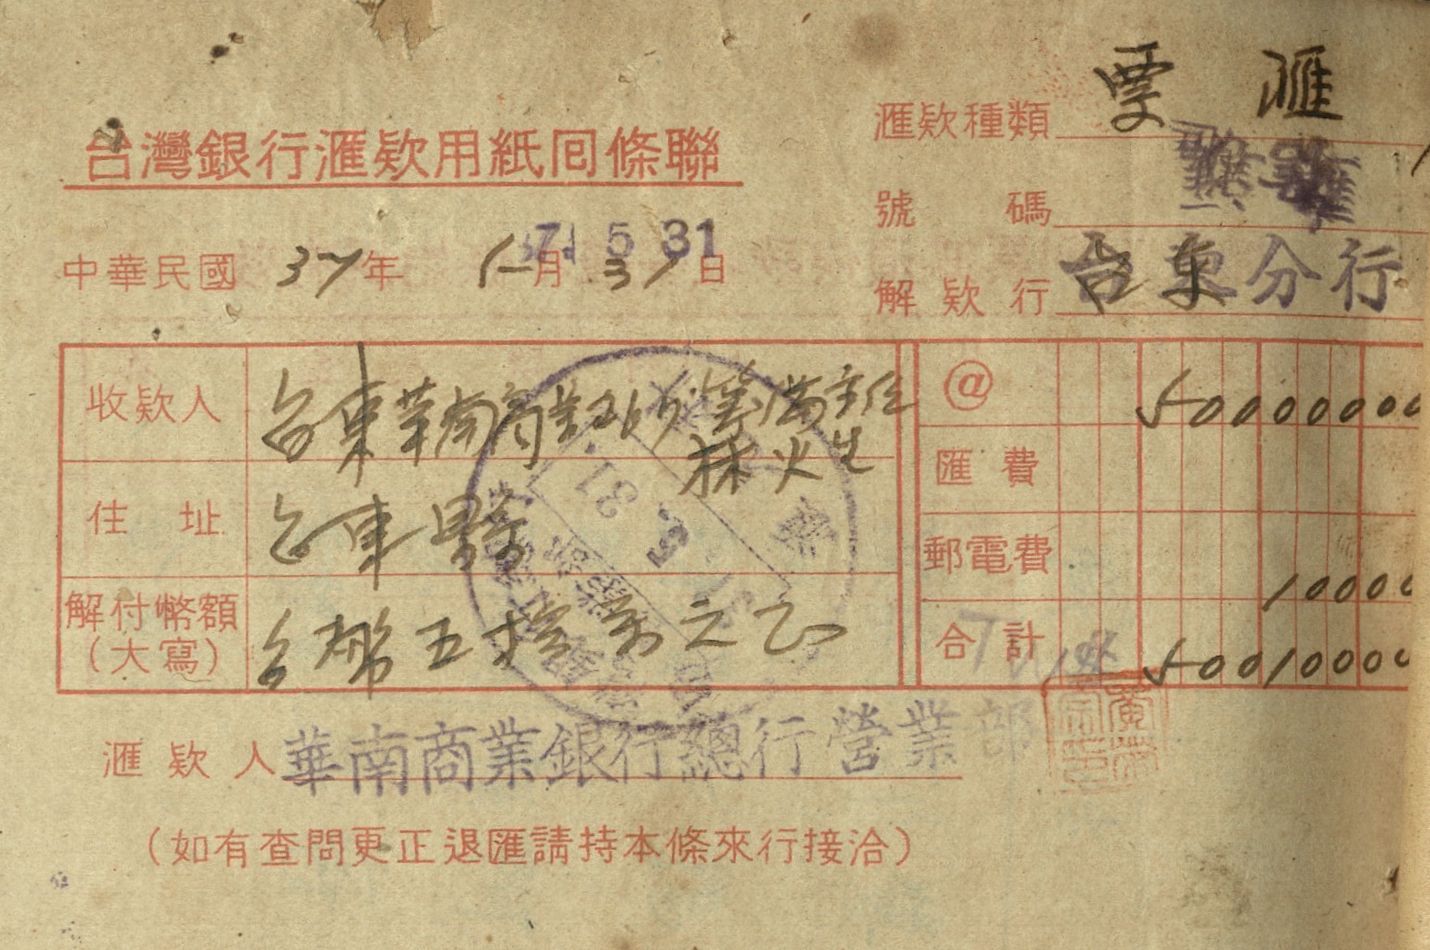 匯款種類 票 匯
台灣銀行滙欵用紙囘條聯
號 碼
中華民國 37 年 5 月 31 日
37 5 31
解欵行 台東分行
收欵人 台東華南商業銀行籌備主任
林火生
住 址 台東縣
解付幣額 台幣五拾萬元正
(大寫)
@ 50000000
匯費
郵電費 10000
合計 50010000
滙欵人 華南商業銀行總行營業部
(如有查問更正退匯請持本條來行接洽)